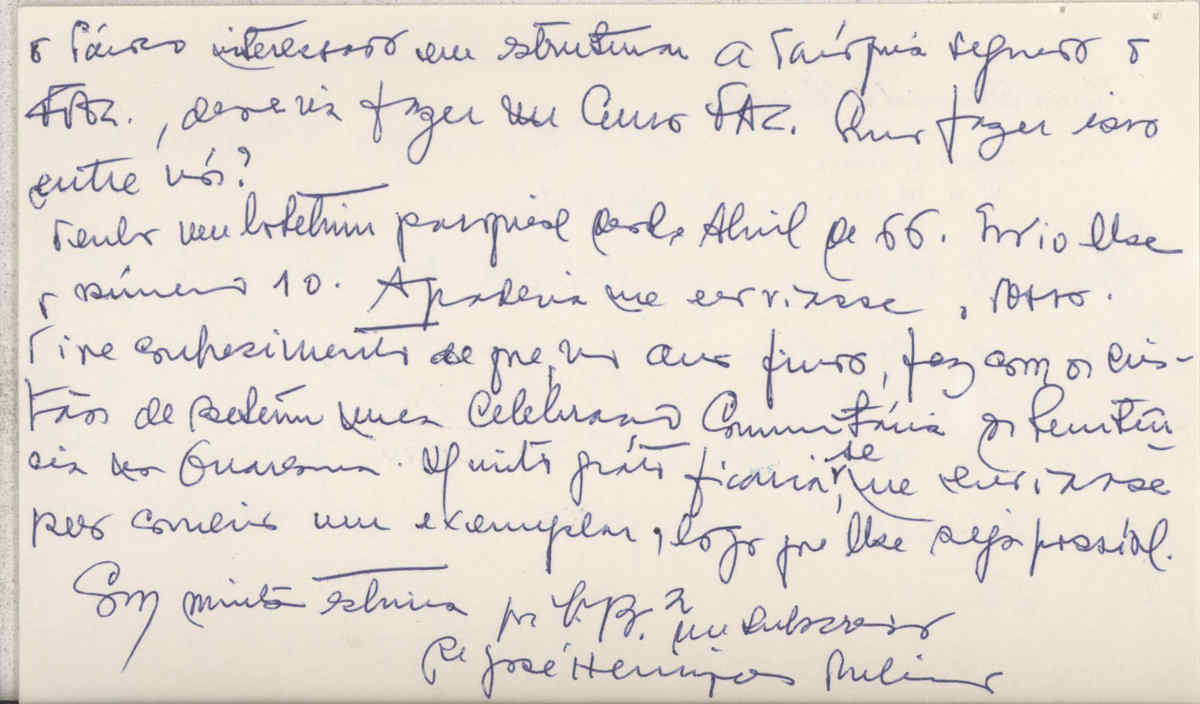 o Pároco interessado em estruturar a Paróquia segundo o
FAC., deveria fazer um Curso FAC. Quer fazer isso
entre nós?
Tenho um boletim paroquial desde Abril de 66. Envio lhe
o número 10. Apoderia me enviasse, .
Tive conhecimento de que, no ano findo, fez com os Cris-
tãos de Belém uma Celebração Comunitária de Penitên
cia na Quaresma. Muito grato ficaria, se me enviasse
por correio um exemplar, logo que lhe seja possível.
Com muita estima por V. R.ª me subscrevo
Pe José Henriques